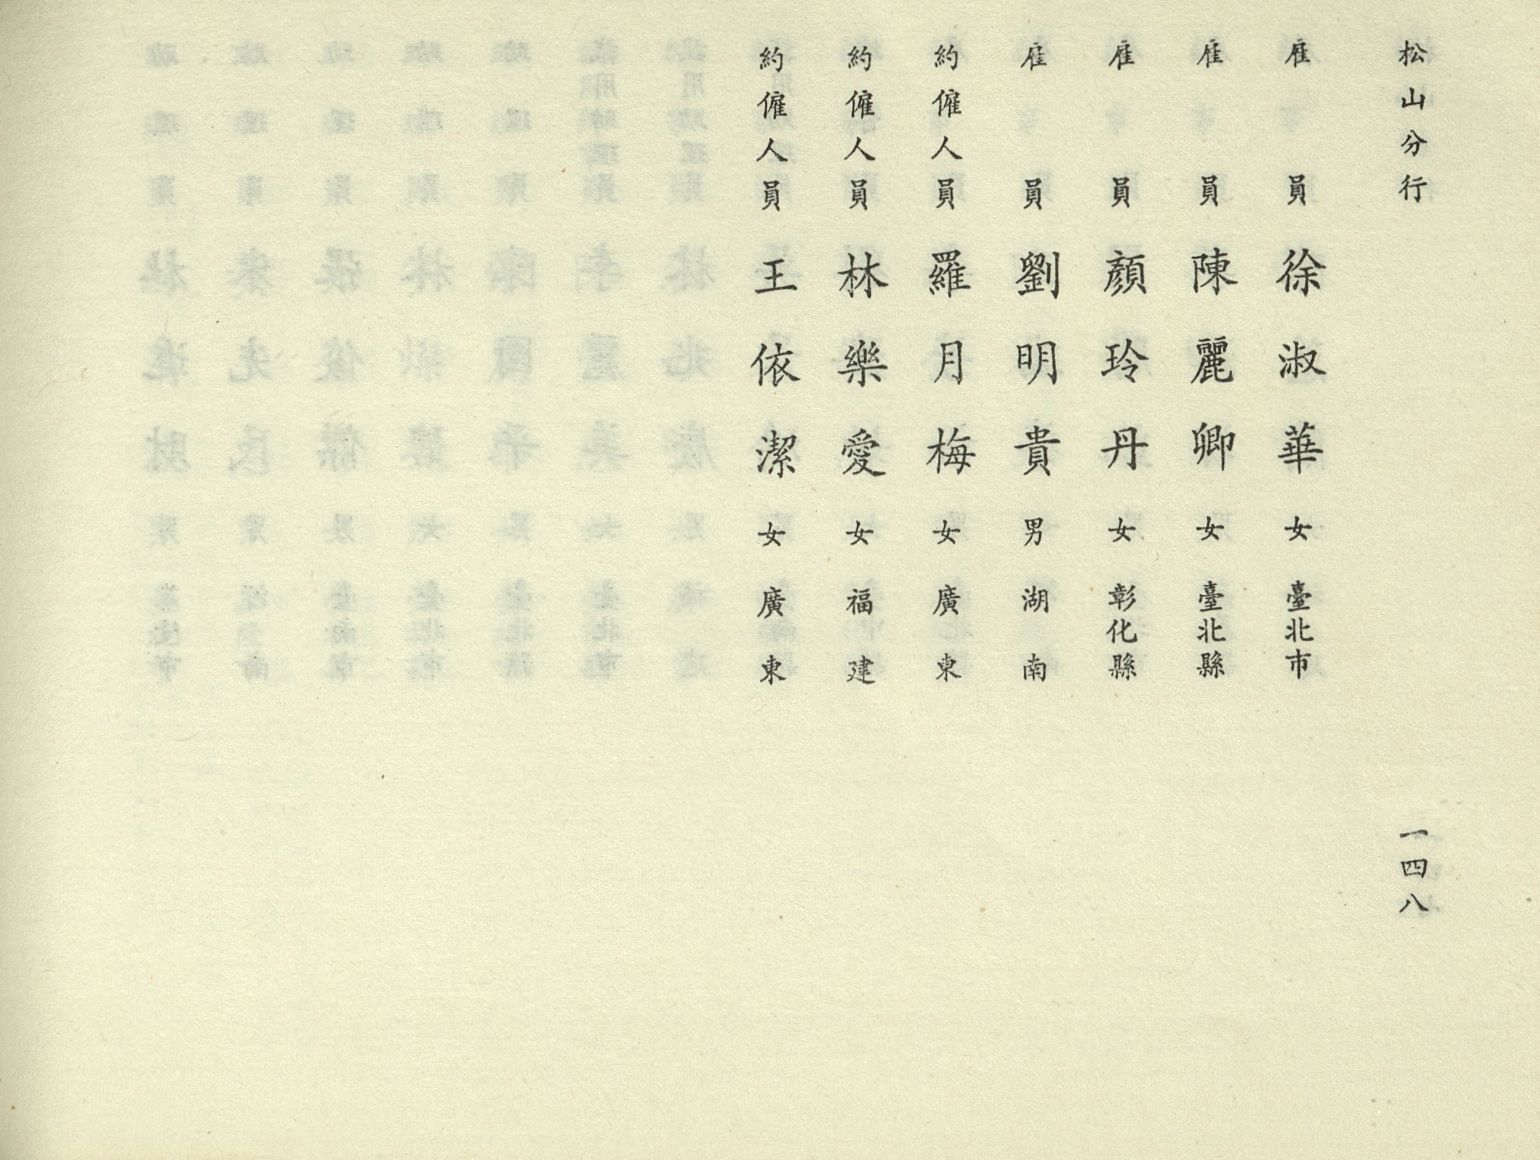 松山分行
一四八
雇員徐淑華女臺北市
雇員陳麗卿女臺北縣
雇員顏玲丹女彰化縣
雇員劉明貴男湖南
約僱人員羅月梅女廣東
約僱人員林樂愛女福建
約僱人員王依潔女廣東